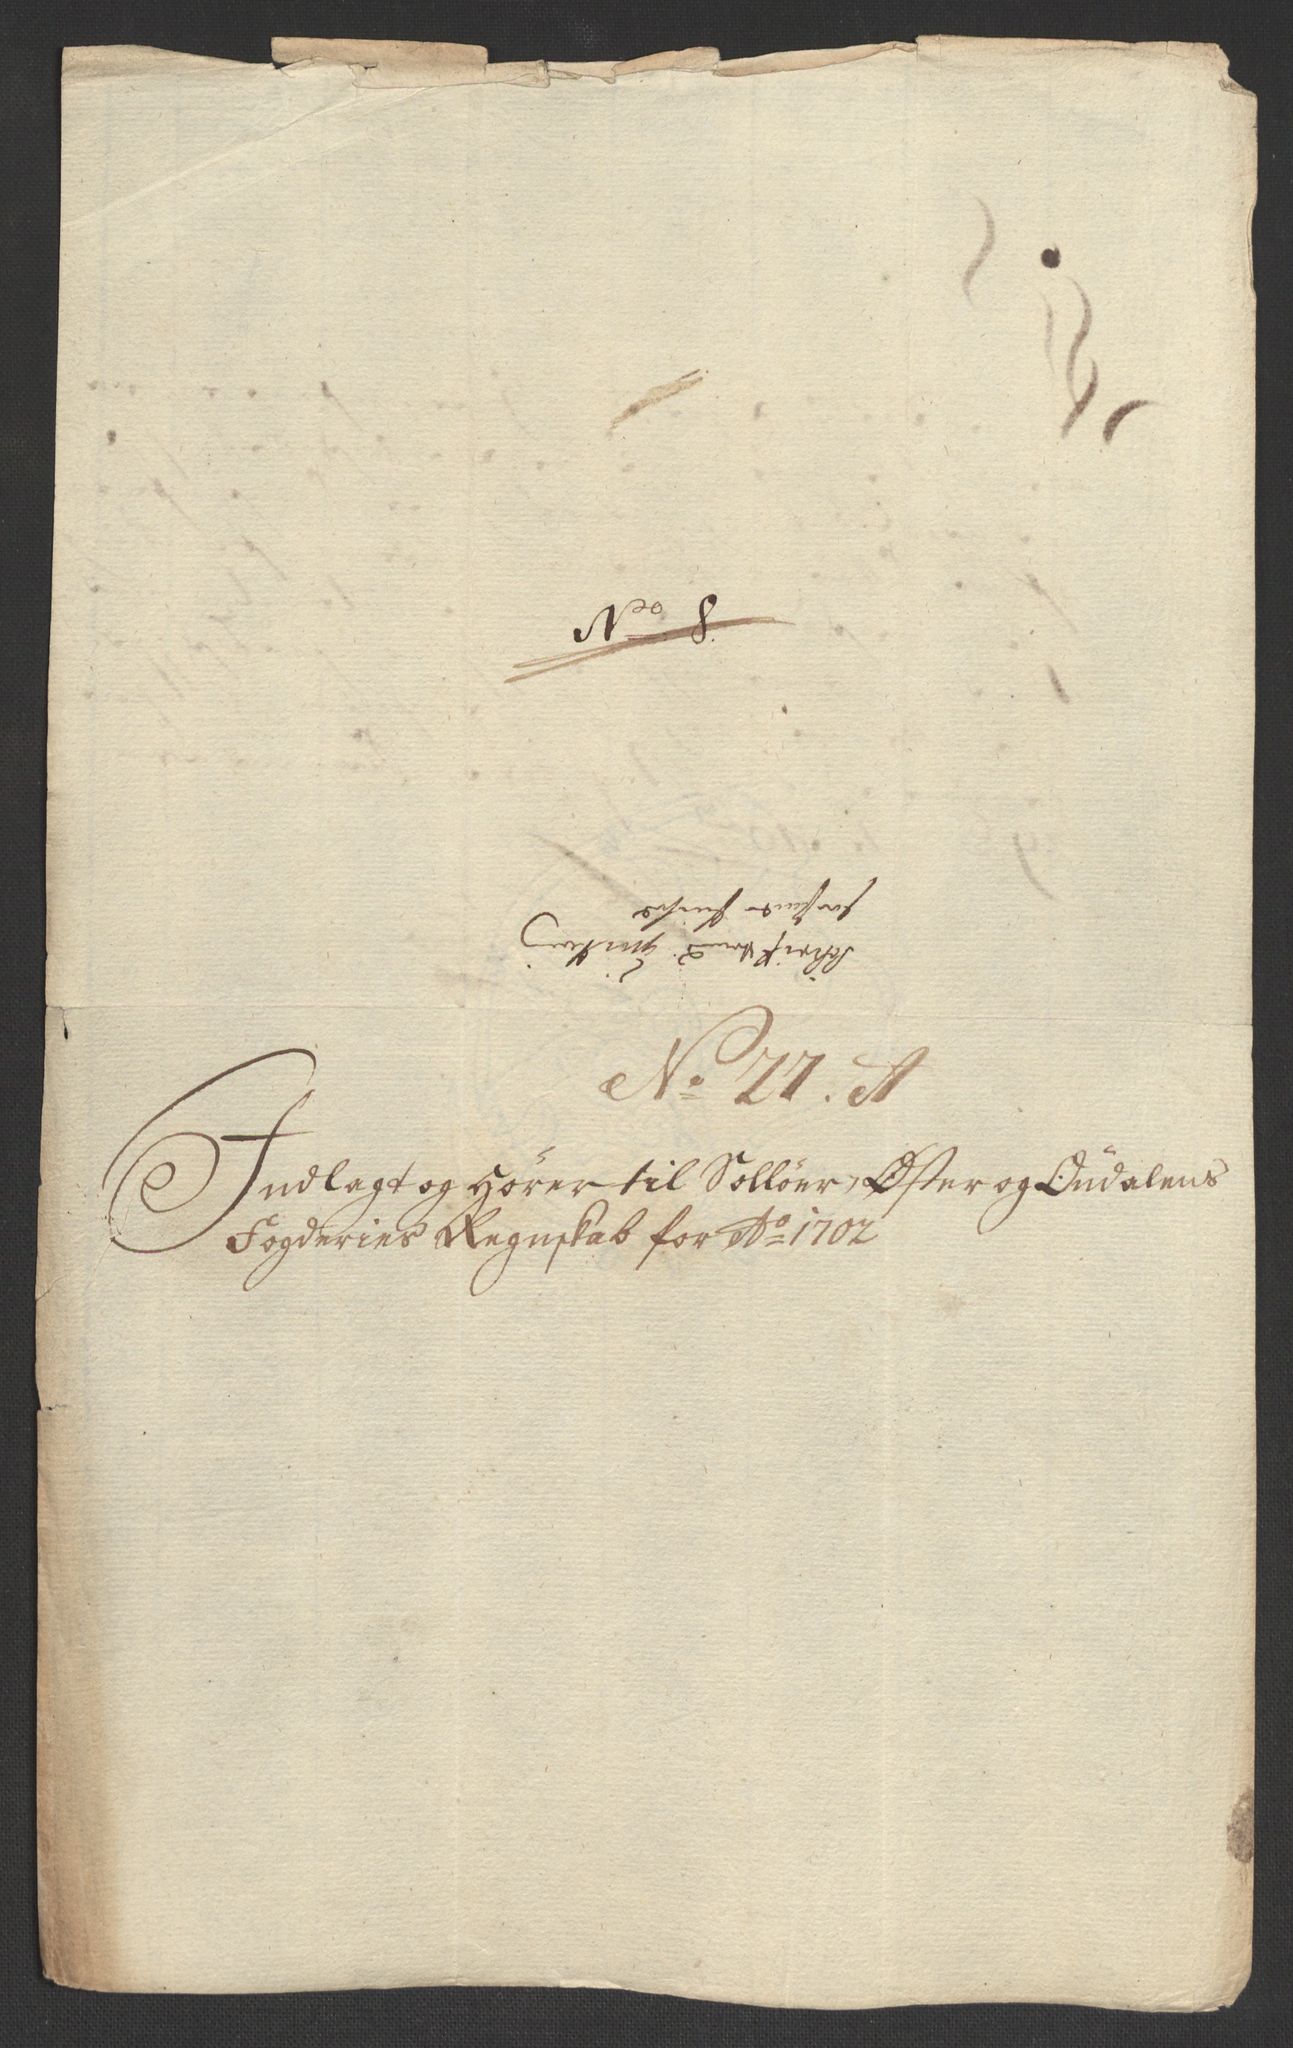 Nᵉᵒ 8.
Nᵒ 27. A
Indlagt og hörer til Sollöer, Øster og Oüdalens
Fogderies Regnskab for Aᵒ 1702